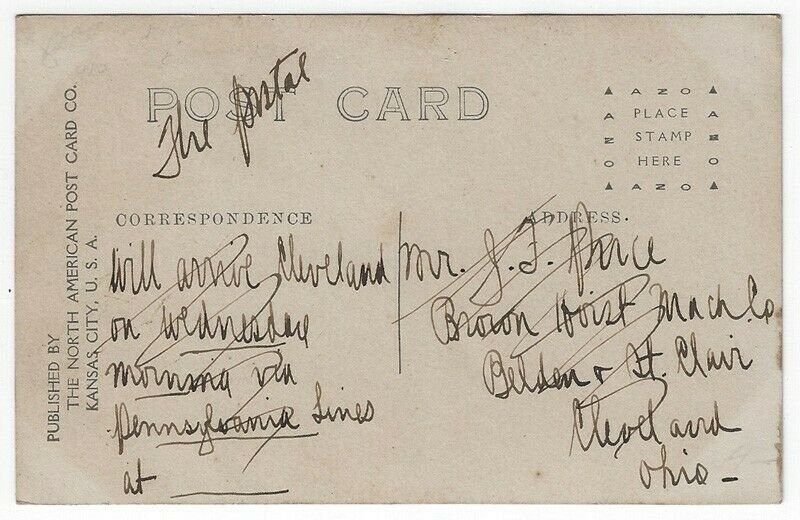 The postal
POST CARD
▲ A Z O ▲
PLACE
STAMP
HERE
▲ A Z O ▲
PUBLISHED BY
THE NORTH AMERICAN POST CARD CO.
KANSAS CITY, U. S. A.
CORRESPONDENCE
ADDRESS.
Will arrive Cleveland
on Wednesday
morning via
Pennsylvania Lines
at
Mr. J. F. Price
Brown Hoist Mach. Co
Belden & St. Clair
Cleveland
Ohio -